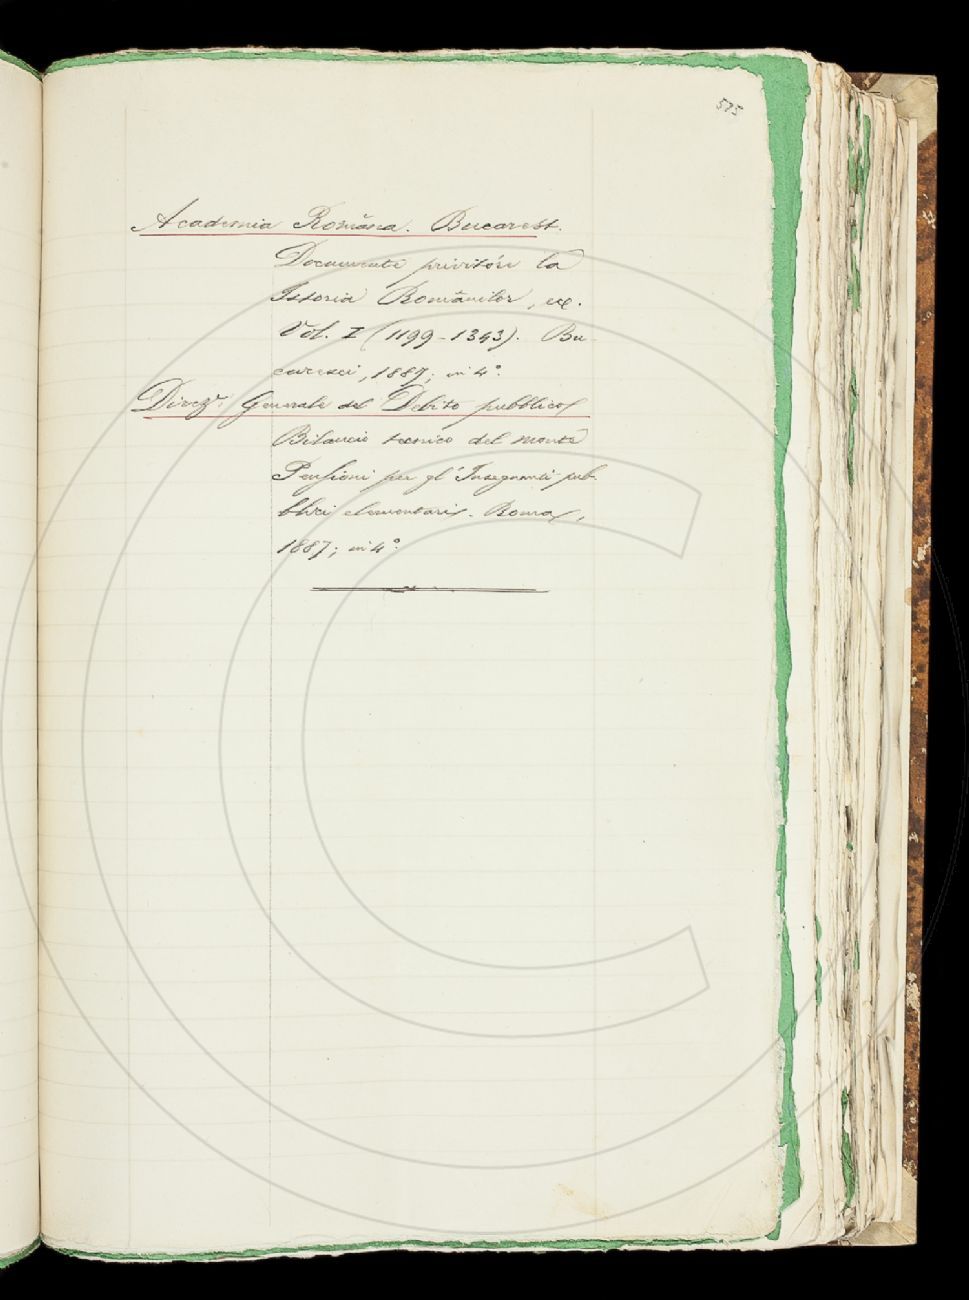 575
Academia Româna. Bucarest.
Documente privitóre la
Istoria Românilor, ecc.
Vol. I (1199-1343). Bu-
caresci, 1887; in 4°.
Direze. Generale del Debito pubblico
Bilancio tecnico del monte
Pensioni per gl'Insegnanti pub-
blici elementari. Roma,
1887; in 4°.